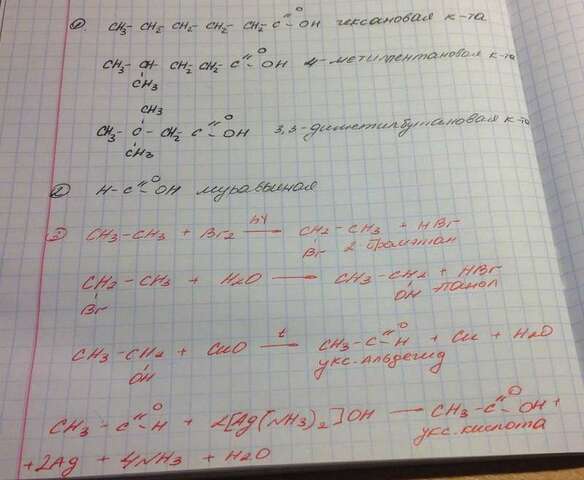 1. CH3- CH2- CH2- CH2- CH2- C=O OH гексановая к-та
CH3- CH- CH2 CH2- C=O OH 4-метилпентановая к-та
CH3
CH3
CH3- C- CH2- C=O OH 3,3-диметилбутановая к-та
CH3
2. H-C=O OH муравьиная
3. CH3-CH3 + Br2 → hγ CH2-CH3 + HBr
Br 2 бромэтан
CH2-CH3 + H2O → CH3-CH2 + HBr
Br OH
CH3-CH2 + CuO → t CH3-C=O H + Cu + H2O
OH укс. альдегид
CH3-C=O H + 2[Ag(NH3)2]OH → CH3-C=O OH +
укс. кислота
+2Ag + 4NH3 + H2O